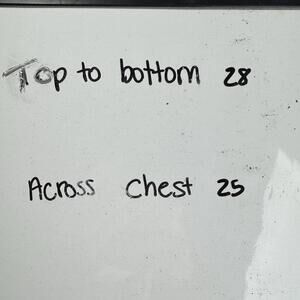 Top to bottom 28
Across chest 25